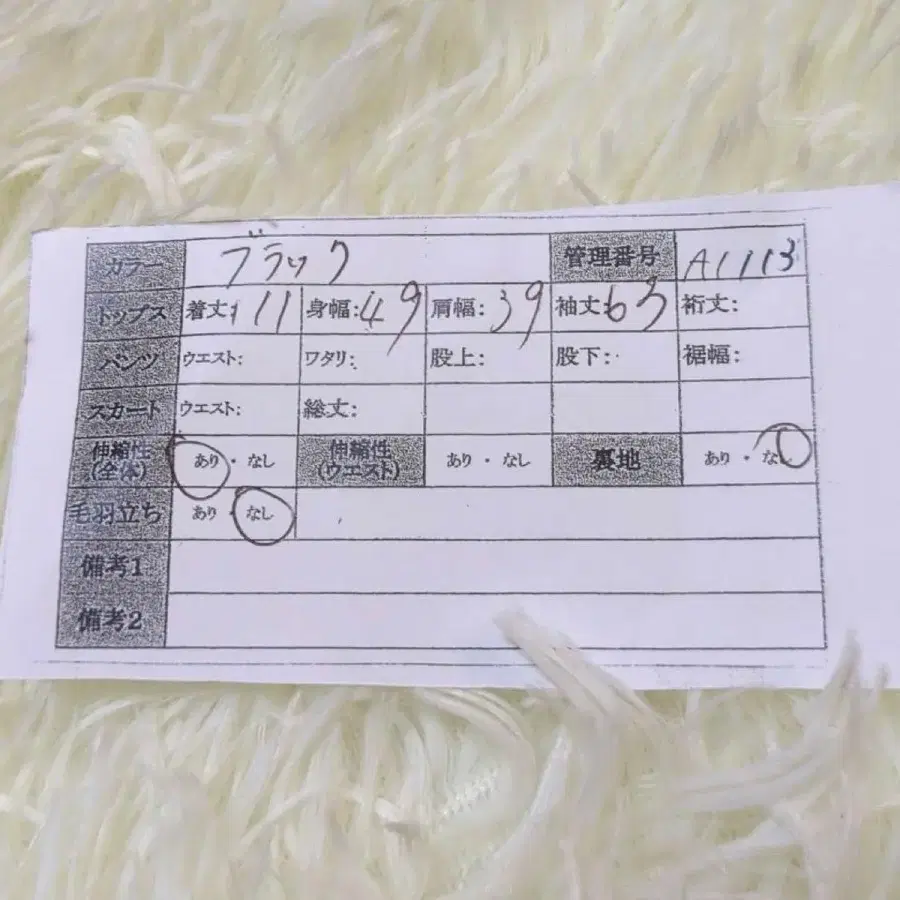 カラー ブラック 管理番号 A1113
トップス 着丈: 111 身幅: 49 肩幅: 39 袖丈 63 裄丈:
パンツ ウエスト: ワタリ: 股上: 股下: 裾幅:
スカート ウエスト: 総丈:
伸縮性(全体) あり・なし 伸縮性(ウエスト) あり・なし 裏地 あり・なし
毛羽立ち あり・なし
備考1
備考2